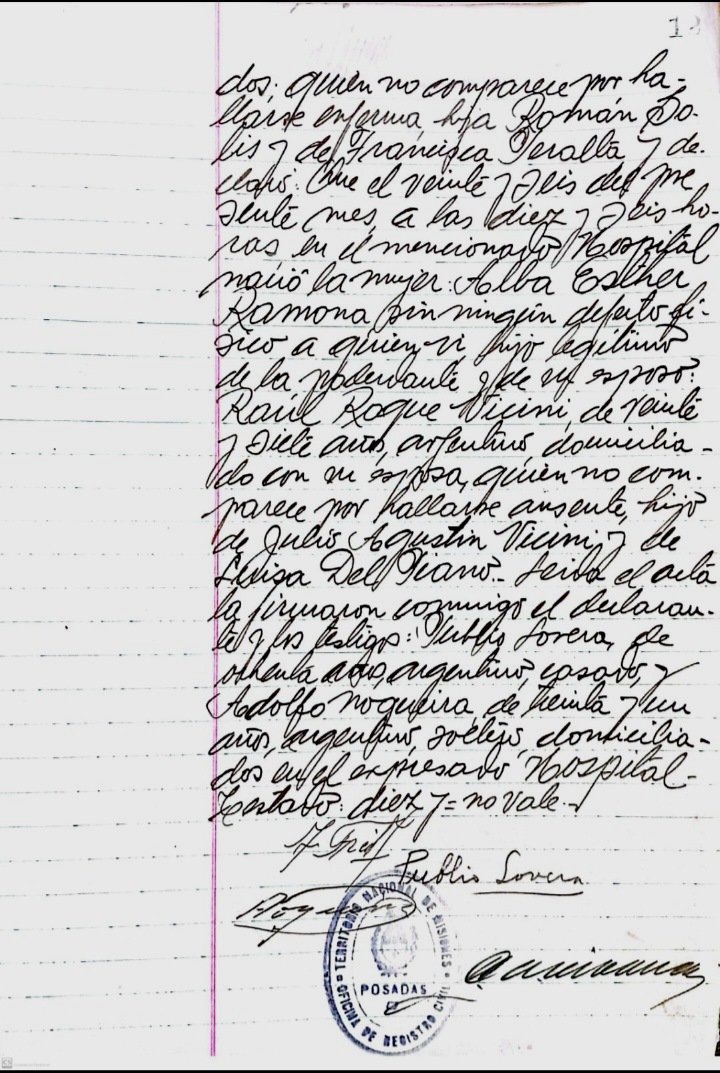 dos; quien no comparece por ha-
llarse enferma, hija Román So-
lis y de Francisca Peralta y de-
claró: Que el veinte y seis del pre
sente mes, a las diez y seis ho-
ras, en el mencionado Hospital
nació la mujer: Alba Esther
Ramona sin ningún defecto fí-
sico a quien vi, hijo legítimo
de la poderdante y de su esposo:
Raúl Roque Vicini, de veinte
y siete años, argentino, domicilia-
do con su esposa, quien no com-
parece por hallarse ausente, hijo
de Julio Agustín Vicini, y de
Luisa Del Piano.- Leida el acta
la firmaron conmigo el declaran-
te y los testigos: Publio Lovera, de
años, argentino, casado, y
Adolfo Nogueira, de treinta y un
años, argentino, soltero, domicilia-
dos en el expresado Hospital-
Testado: diez y = no vale.-
Publio Lovera
TERRITORIO NACIONAL DE MISIONES
POSADAS
OFICINA DE REGISTRO CIVIL